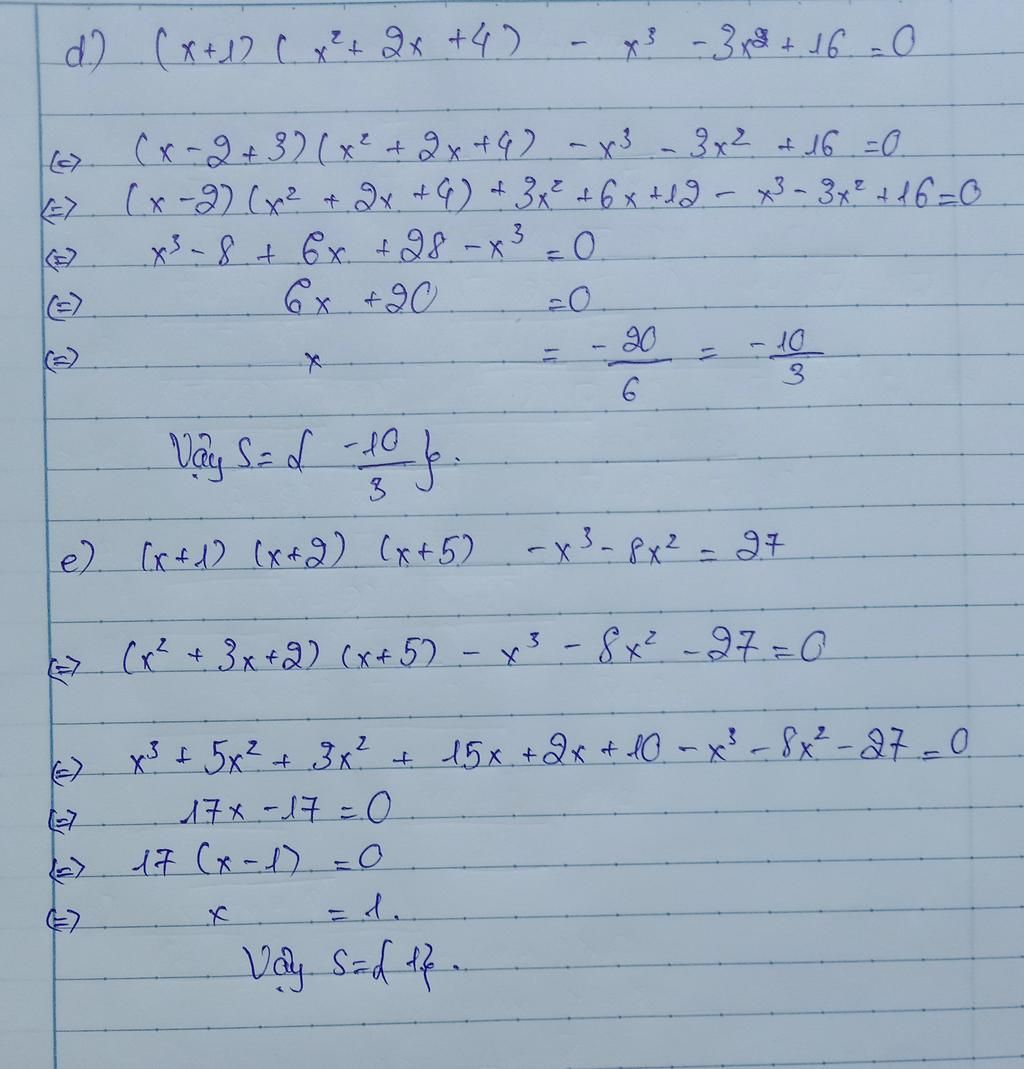 d) (x+1) (x² + 2x + 4) - x³ - 3x² + 16 = 0
(=) (x - 2 + 3) (x² + 2x + 4) - x³ - 3x² + 16 = 0
(=) (x - 2) (x² + 2x + 4) + 3x² + 6x + 12 - x³ - 3x² + 16 = 0
(=) x³ - 8 + 6x + 28 - x³ = 0
(=) 6x + 20 = 0
(=) x = -20/6 = -10/3
Vậy S = { -10/3 }.
e) (x+1) (x+2) (x+5) - x³ - 8x² = 27
(=) (x² + 3x + 2) (x+5) - x³ - 8x² - 27 = 0
(=) x³ + 5x² + 3x² + 15x + 2x + 10 - x³ - 8x² - 27 = 0
(=) 17x - 17 = 0
(=) 17 (x - 1) = 0
(=) x = 1.
Vậy S = { 1 }.